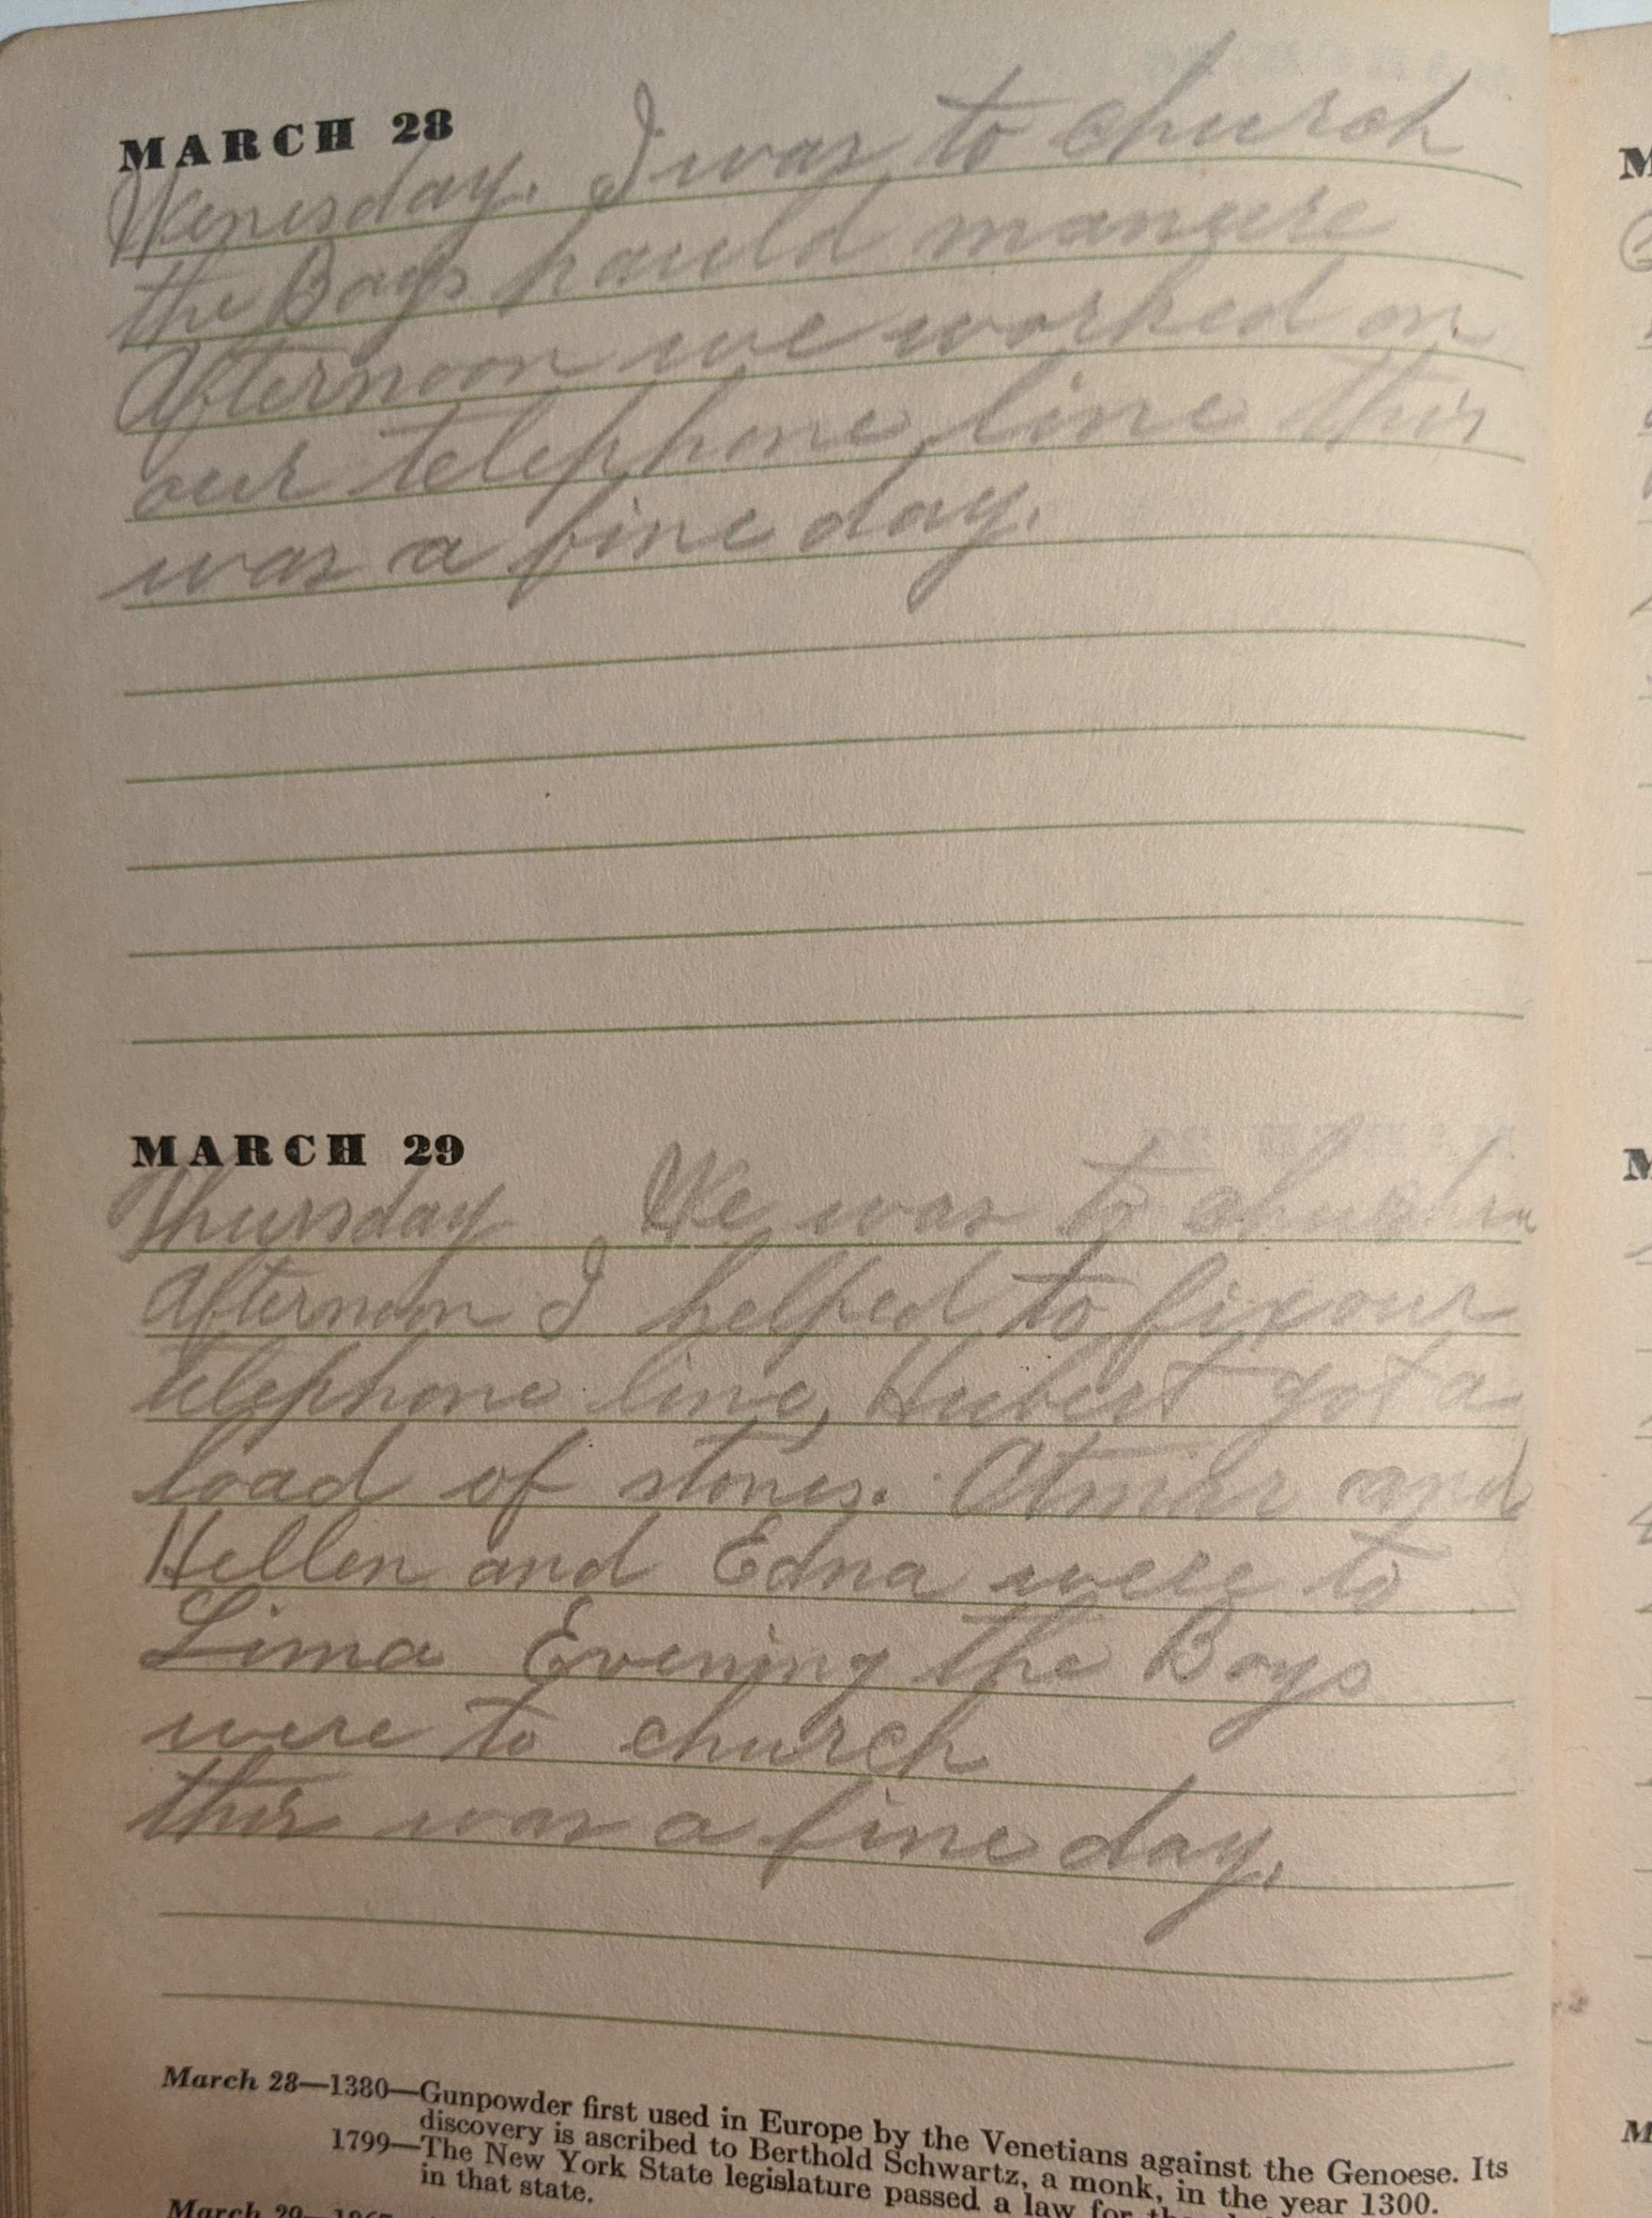 MARCH 28
Wenesday. I was to church
the Boys hauld manure
Afternoon we worked on
our telephone line this
was a fine day.
MARCH 29
Thursday We was to church
Afternoon I helped to fix our
telephone line, Hubert got a
load of stones. Otmar and
Hellen and Edna were to
Lima Evening the Boys
were to church
this was a fine day.
March 28—1380—Gunpowder first used in Europe by the Venetians against the Genoese. Its
discovery is ascribed to Berthold Schwartz, a monk, in the year 1300.
1799—The New York State legislature passed a law for
in that state.
March 29